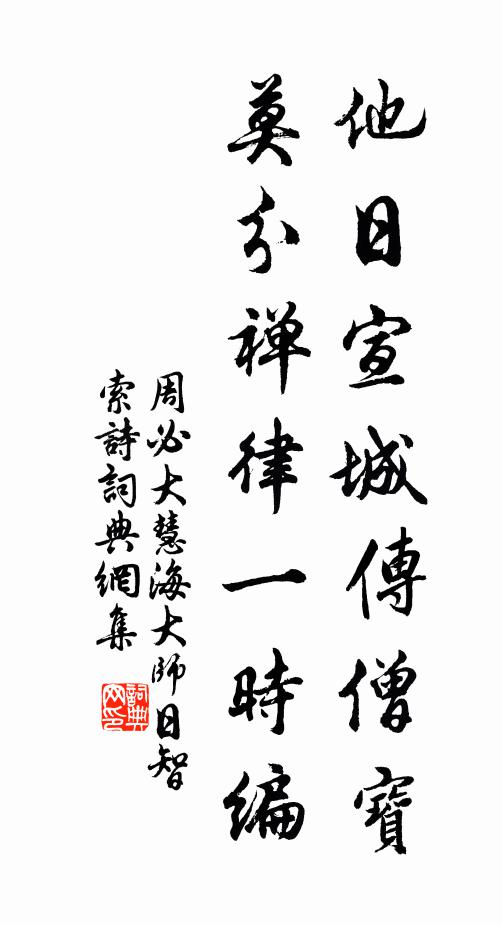 他日宣城傳僧寶
莫分禅律一時編
周必大慧海大師日智
索詩詞典網集
詞典
网印